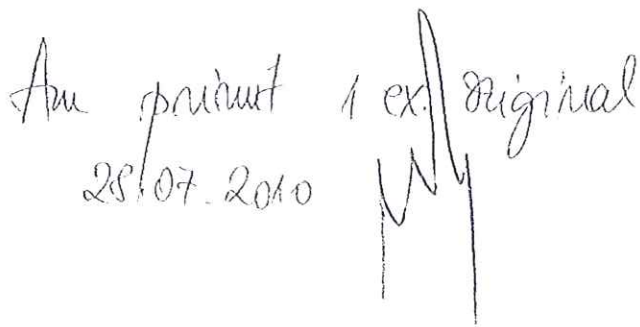 Am primit 1 ex. original
28.07.2010